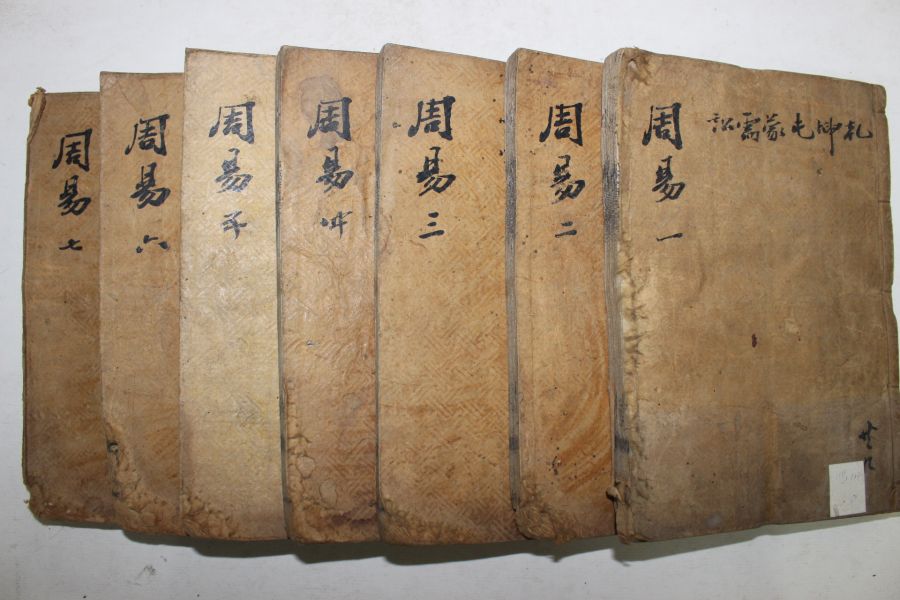 乾坤屯蒙需訟
周易 一
周易 二
周易 三
周易 四
周易 五
周易 六
周易 七